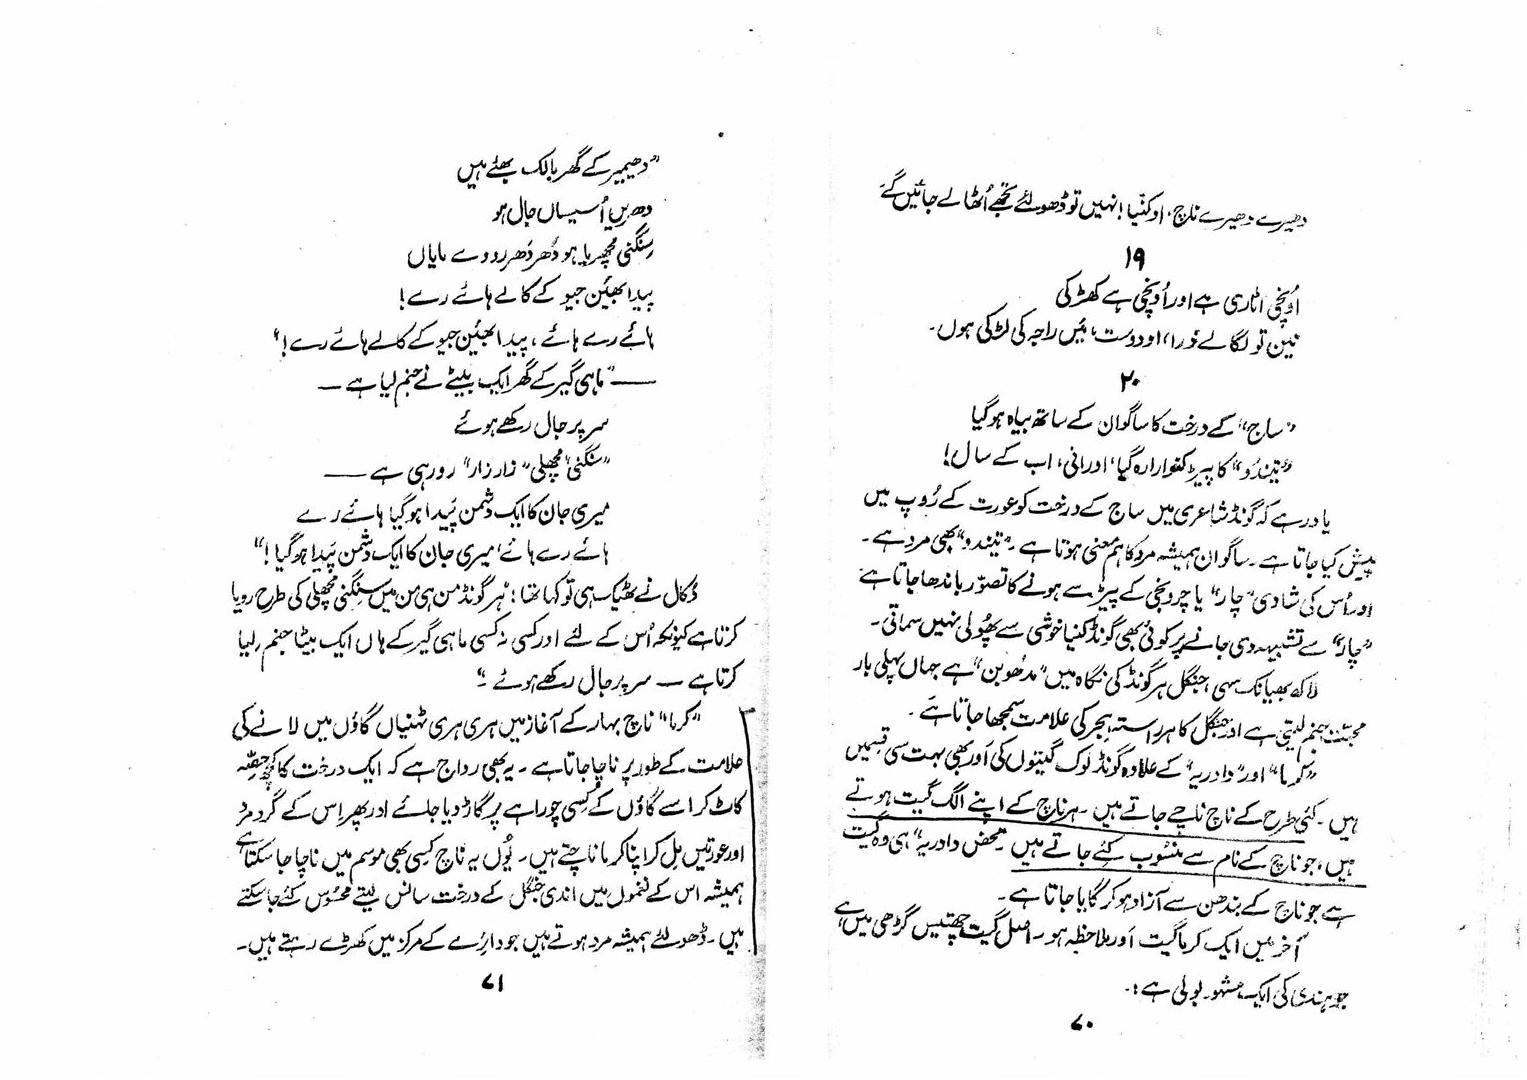 دھیرے دھیرے ناچ، او کنیا! نہیں تو ڈھولئے تجھے اُٹھا لے جائیں گے
۱۹
اُونچی اٹاری ہے اور اُونچی ہے کھڑکی
نین تو لگا لے ذرا، او دوست، میں راجہ کی لڑکی ہوں۔
۲۰
”ساج“ کے درخت کا ساگوان کے ساتھ بیاہ ہو گیا
”تیندُو“ کا پیڑ کنوارا رہ گیا، او رانی، اب کے سال!
یاد رہے کہ گونڈ شاعری میں ساج کے درخت کو عورت کے رُوپ میں
پیش کیا جاتا ہے۔ ساگوان ہمیشہ مرد کا ہم معنی ہوتا ہے۔ ”تیندو“ بھی مرد ہے۔
اور اُس کی شادی ”چار“ یا چرونجی کے پیڑ سے ہونے کا تصوّر باندھا جاتا ہے
”چار“ سے تشبیہہ دی جانے پر کوئی بھی گونڈ کنیا خوشی سے پھُولی نہیں سماتی۔
لاکھ بھیانک سہی جنگل ہر گونڈ کی نگاہ میں ”مدھوبن“ ہے جہاں پہلی بار
محبّت جنم لیتی ہے اور جنگل کا ہر راستہ ہجر کی علامت سمجھا جاتا ہے۔
”کرما“ اور ”دادریہ“ کے علاوہ گونڈ لوک گیتوں کی اَور بھی بہت سی قسمیں
ہیں۔ کئی طرح کے ناچ ناچے جاتے ہیں۔ ہر ناچ کے اپنے الگ گیت ہوتے
ہیں، جو ناچ کے نام سے منسُوب کئے جاتے ہیں محض ”دادریہ“ ہی وہ گیت
ہے جو ناچ کے بندھن سے آزاد ہو کر گایا جاتا ہے۔
آخر میں ایک کرما گیت اَور ملاحظہ ہو۔ اصل گیت چھتیس گڑھی میں ہے
جو ہندی کی ایک مشہور بولی ہے:۔
۷۰
”دھیمیر کے گھر بالک بھئے ہیں
دھریں اُسیساں جال ہو
سنگنی مچھریا ہو دُھر دُھر رووے مایاں
پیدا بھئین جیو کے کالے ہائے رے!
ہائے رے ہائے، پیدا بھئین جیو کے کالے ہائے رے!“
—”ماہی گیر کے گھر ایک بیٹے نے جنم لیا ہے —
سر پر جال رکھے ہوئے
”سنگنی“ مچھلی ”زار زار“ رو رہی ہے —
میری جان کا ایک دشمن پَیدا ہو گیا ہائے رے
ہائے رے ہائے، میری جان کا ایک دشمن پَیدا ہو گیا!“
دُکال نے ٹھیک ہی تو کہا تھا: ”ہر گونڈ من ہی من میں سنگنی مچھلی کی طرح رویا
کرتا ہے کیونکہ اُس کے لئے اور کسی نہ کسی ماہی گیر کے ہاں ایک بیٹا جنم لیا
کرتا ہے — سر پر جال رکھے ہوئے۔“
”کرما“ ناچ بہار کے آغاز میں ہری ہری ٹہنیاں گاؤں میں لانے کی
علامت کے طور پر ناچا جاتا ہے۔ یہ بھی رواج ہے کہ ایک درخت کا کچھ حِصّہ
کاٹ کر اسے گاؤں کے کِسی چوراہے پر گاڑ دیا جائے اور پھر اِس کے گرد مرد
اور عورتیں مِل کر اپنا کرما ناچتے ہیں۔ یُوں یہ ناچ کِسی بھی موسم میں ناچا جا سکتا ہے
ہمیشہ اس کے نغموں میں اندی جنگل کے درخت سانس لیتے محسُوس کئے جا سکتے
ہیں۔ ڈھولئے ہمیشہ مرد ہوتے ہیں جو دائرے کے مرکز میں کھڑے رہتے ہیں۔
۷۱